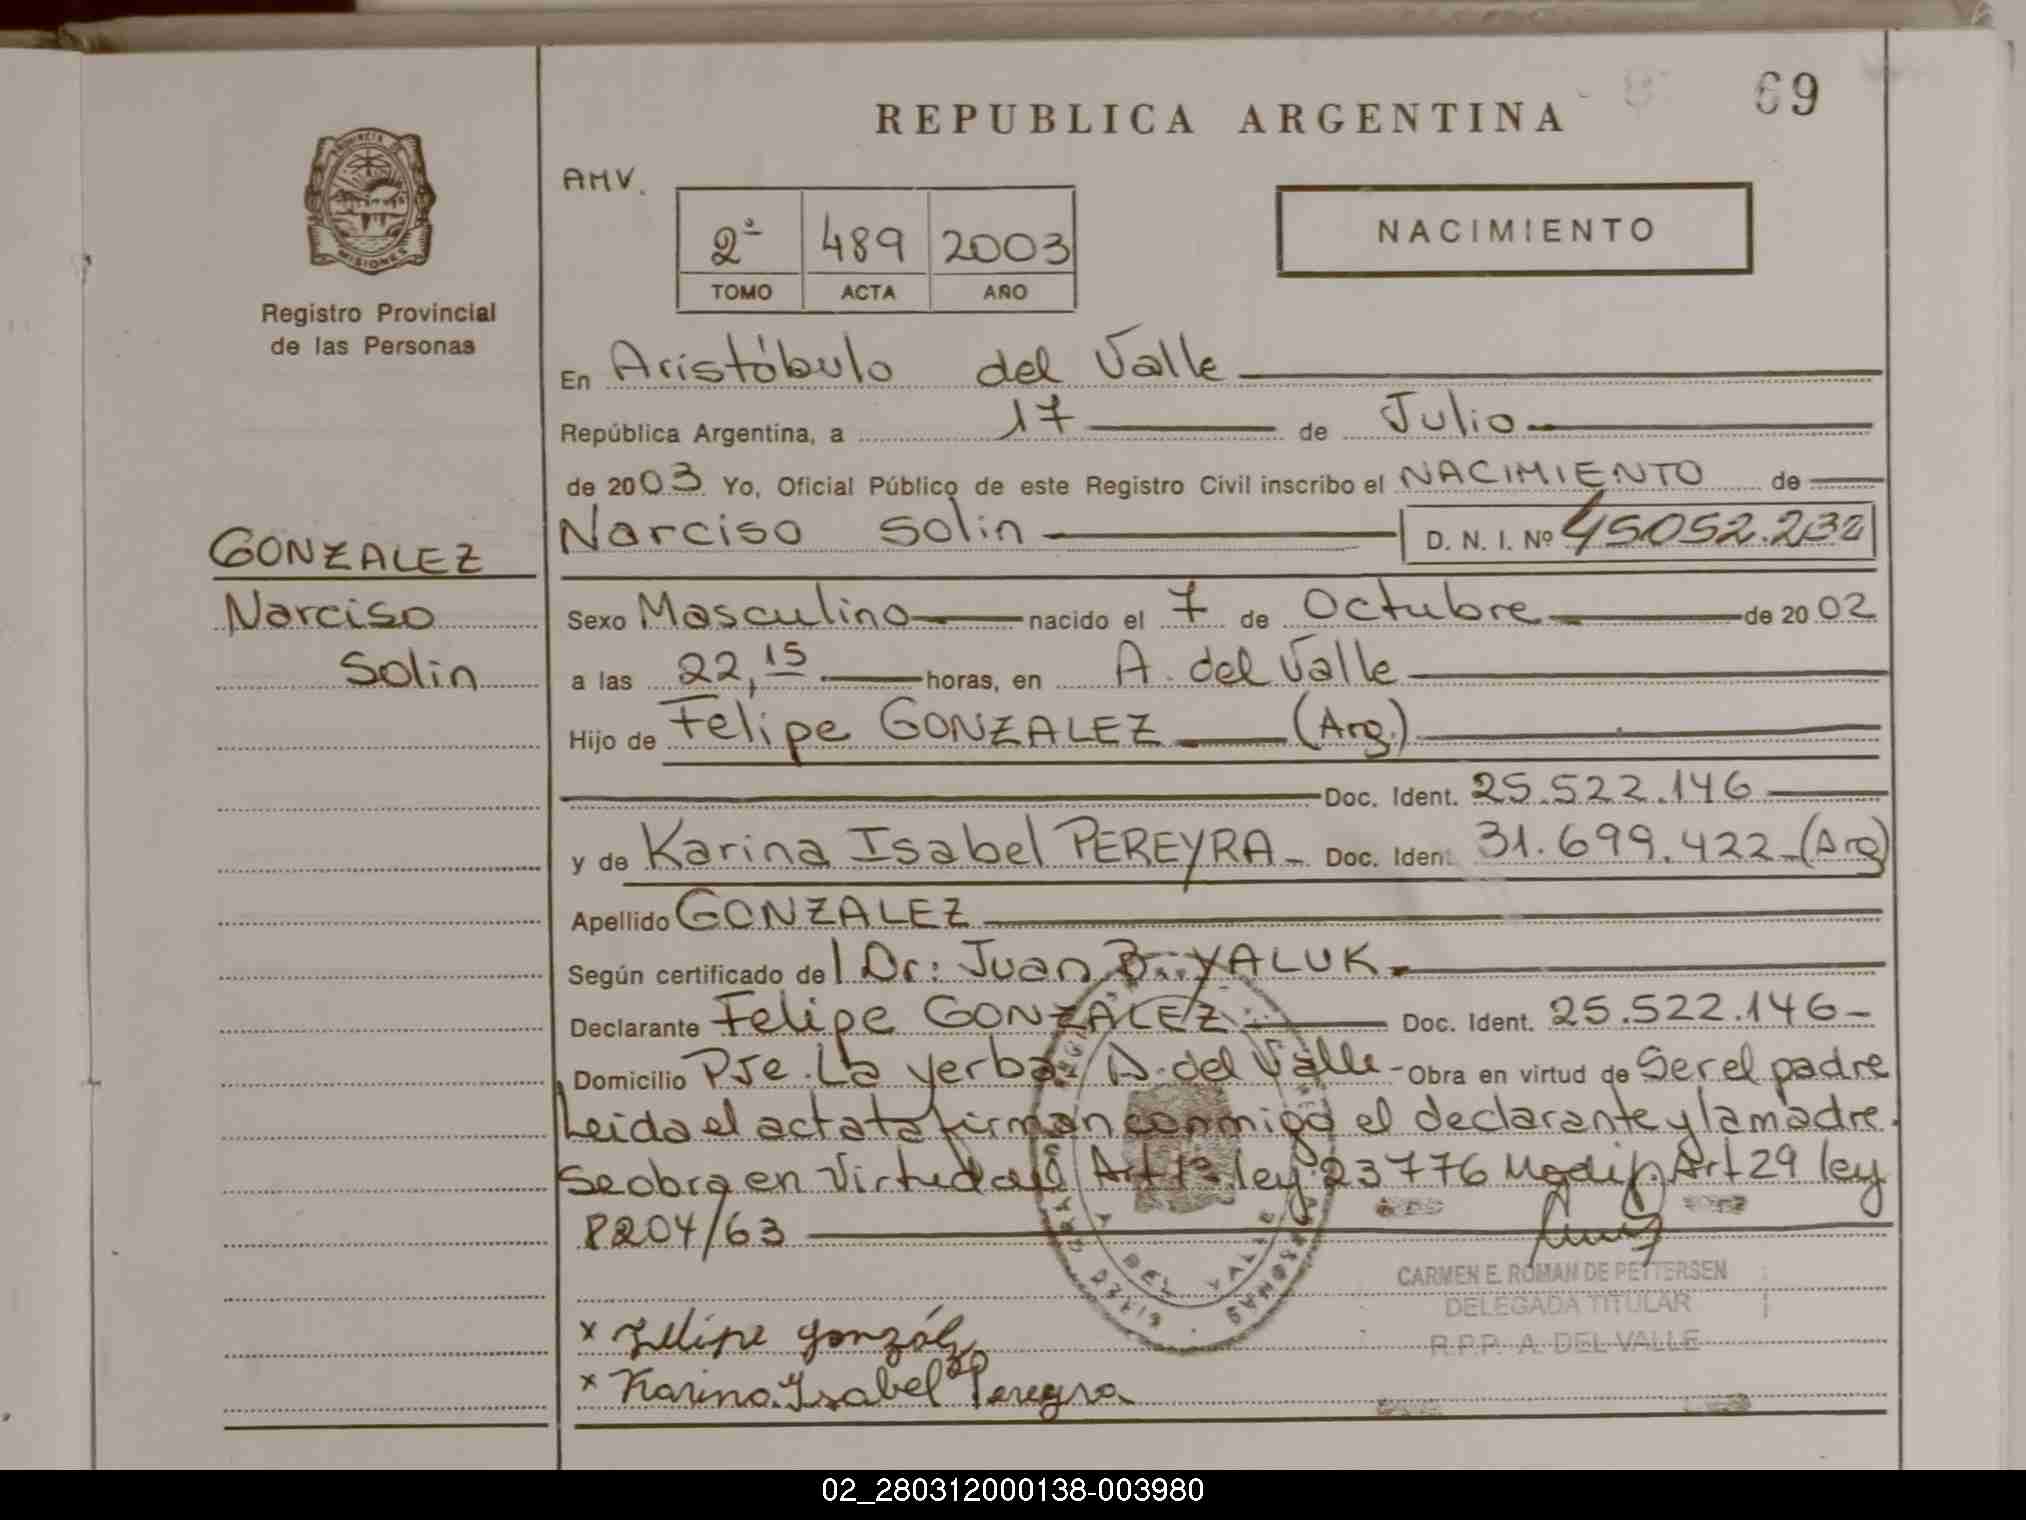 69
REPUBLICA ARGENTINA
AMV.
2º 489 2003
TOMO ACTA AÑO
NACIMIENTO
PROVINCIA DE MISIONES
Registro Provincial
de las Personas
En Aristóbulo del Valle
República Argentina, a 17 de Julio
de 2003 Yo, Oficial Público de este Registro Civil inscribo el NACIMIENTO de
GONZALEZ
Narciso
Solin
Narciso Solin D. N. I. Nº 45052.232
Sexo Masculino nacido el 7 de Octubre de 2002
a las 22,15 horas, en A. del Valle
Hijo de Felipe GONZALEZ (Arg.)
Doc. Ident. 25.522.146
y de Karina Isabel PEREYRA - Doc. Ident. 31.699.422 - (Arg)
Apellido GONZALEZ
Según certificado del Dr: Juan B. YALUK
Declarante Felipe GONZALEZ Doc. Ident. 25.522.146 -
Domicilio Pje. La yerba A. del Valle - Obra en virtud de Ser el padre
Leida el acta ta firman conmigo el declarante y la madre.
Se obra en Virtud del Art 1º ley 23776 Modif. Art 29 ley
8204/63
CARMEN E. ROMAN DE PETTERSEN
DELEGADA TITULAR
R.P.P. A. DEL VALLE
x Felipe González
x Karina Ysabel Pereyra
02_280312000138-003980